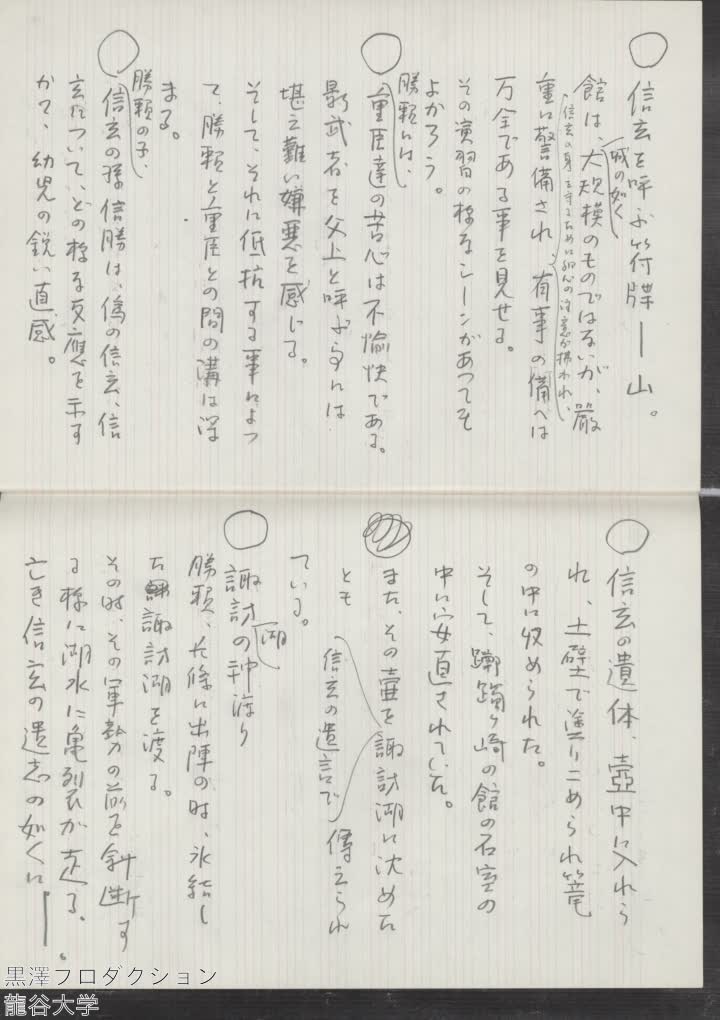 ○ 信玄を呼ぶ符牒――山。
城の如く
館は、大規模のものではないが、厳
信玄の身を守るために細心の注意が拂われ、
重に警備され、有事の備へは
万全である事を見せる。
その演習の様なシーンがあつても
よかろう。
勝頼には、
○ 重臣達の苦心は不愉快である。
影武者を父上と呼ぶ事には
堪え難い嫌悪を感じる。
そして、それに低抗する事によつ
て、勝頼と重臣との間の溝は深
まる。
勝頼の子、
○ 信玄の孫信勝は、偽の信玄、信
玄について、どの様な反應を示す
かて、幼児の鋭い直感。
○ 信玄の遺体、壺中に入れら
れ、土壁で塗りこめられ篭
の中に収められた。
そして、躑躅ヶ崎の館の石室の
中に安直されていた。
また、その壷を諏訪湖に沈めた
とも
信玄の遺言で
傳えられ
ている。
○ 諏訪の神渡り
湖
勝頼、 に出陣の時、氷結し
た諏訪湖を渡る。
その時、その軍勢の前を斜断す
る様に湖水に亀裂が走る。
亡き信玄の遺志の如くに――。
黒澤プロダクション
龍谷大学